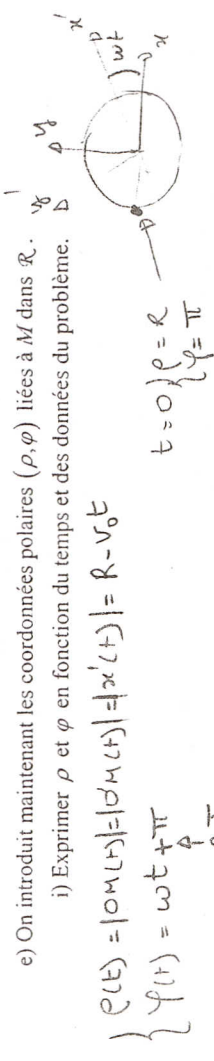 e) On introduit maintenant les coordonnées polaires (ρ,φ) liées à M dans ℛ.
i) Exprimer ρ et φ en fonction du temps et des données du problème.
{ ρ(t) = |OM(t)| = |O'M(t)| = |x'(t)| = R - V₀t
φ(t) = ωt + π
t = 0 { ρ = R
φ = π
y'
y
x'
ωt
x